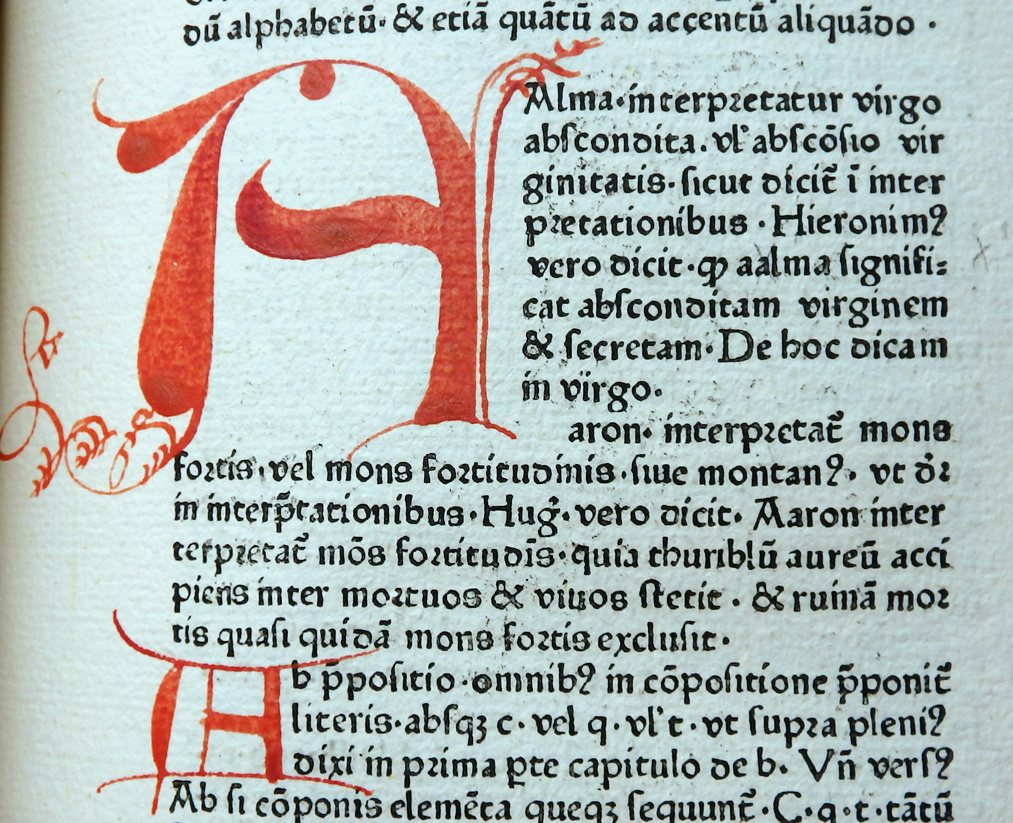 dū alphabetū· & etiā quātū ad accentū aliquādo ·
AAlma·interpretatur virgo
abſcondita. vl' abſcōſio vir
ginitatis· ſicut dicit̄ ī inter
pretationibus · Hieronimꝰ
vero dicit·ꝙ aalma ſignifi⸗
cat abſconditam virginem
& ſecretam· De hoc dicam
in virgo.
aron· interpretat̄ mons
fortis·vel mons fortitudinis·ſiue montanꝰ· vt dr̄
in interp̄tationibus·Hug̉·vero dicit· Aaron inter
terpretat̄ mōs fortitudīs·quia thuriblū aureū acci
piens inter mortuos & viuos ſtetit · & ruinā mor
tis quaſi quidā mons fortis excluſit·
Ab p̄poſitio·omnibꝰ in cōpoſitione p̄ponit̄
literis·abſqꝫ c· vel q·vl' t·vt ſupra pleniꝰ
dixi in prima ꝑte capitulo de b· Vn̄ verſꝰ
Ab ſi cōponis elemēta queqꝫ ſequunt̄·C·q·t·tātū